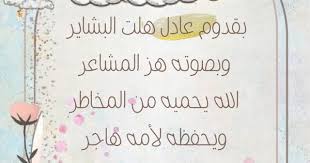 بقدوم عادل هلت البشاير
وبصوته هز المشاعر
الله يحميه من المخاطر
ويحفظه لأمه هاجر